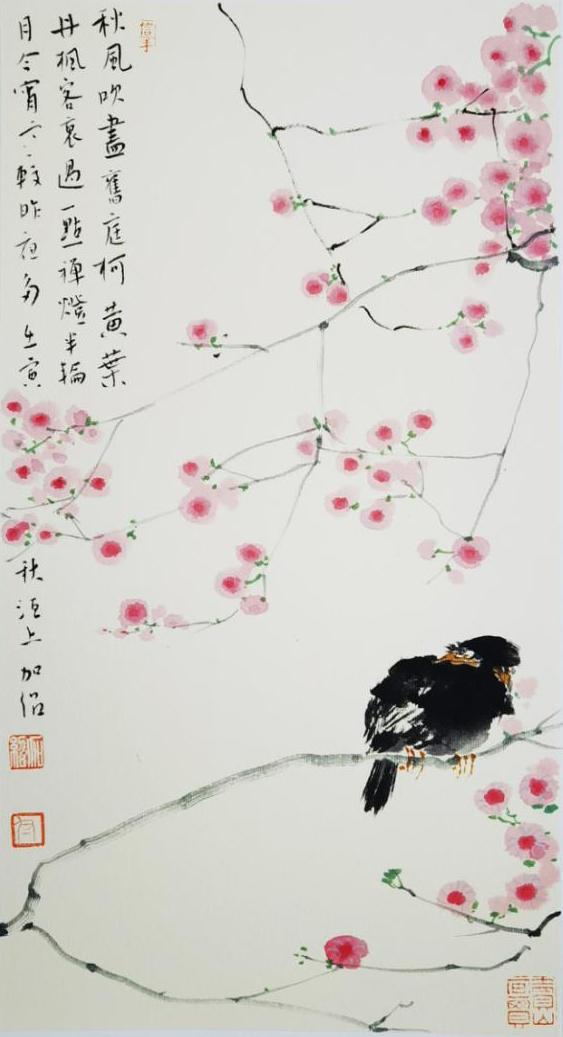 信手
秋風吹盡舊庭柯黃葉
丹楓客裏過一點禪燈半輪
月今宵寒較昨夜多壬寅
秋洹上